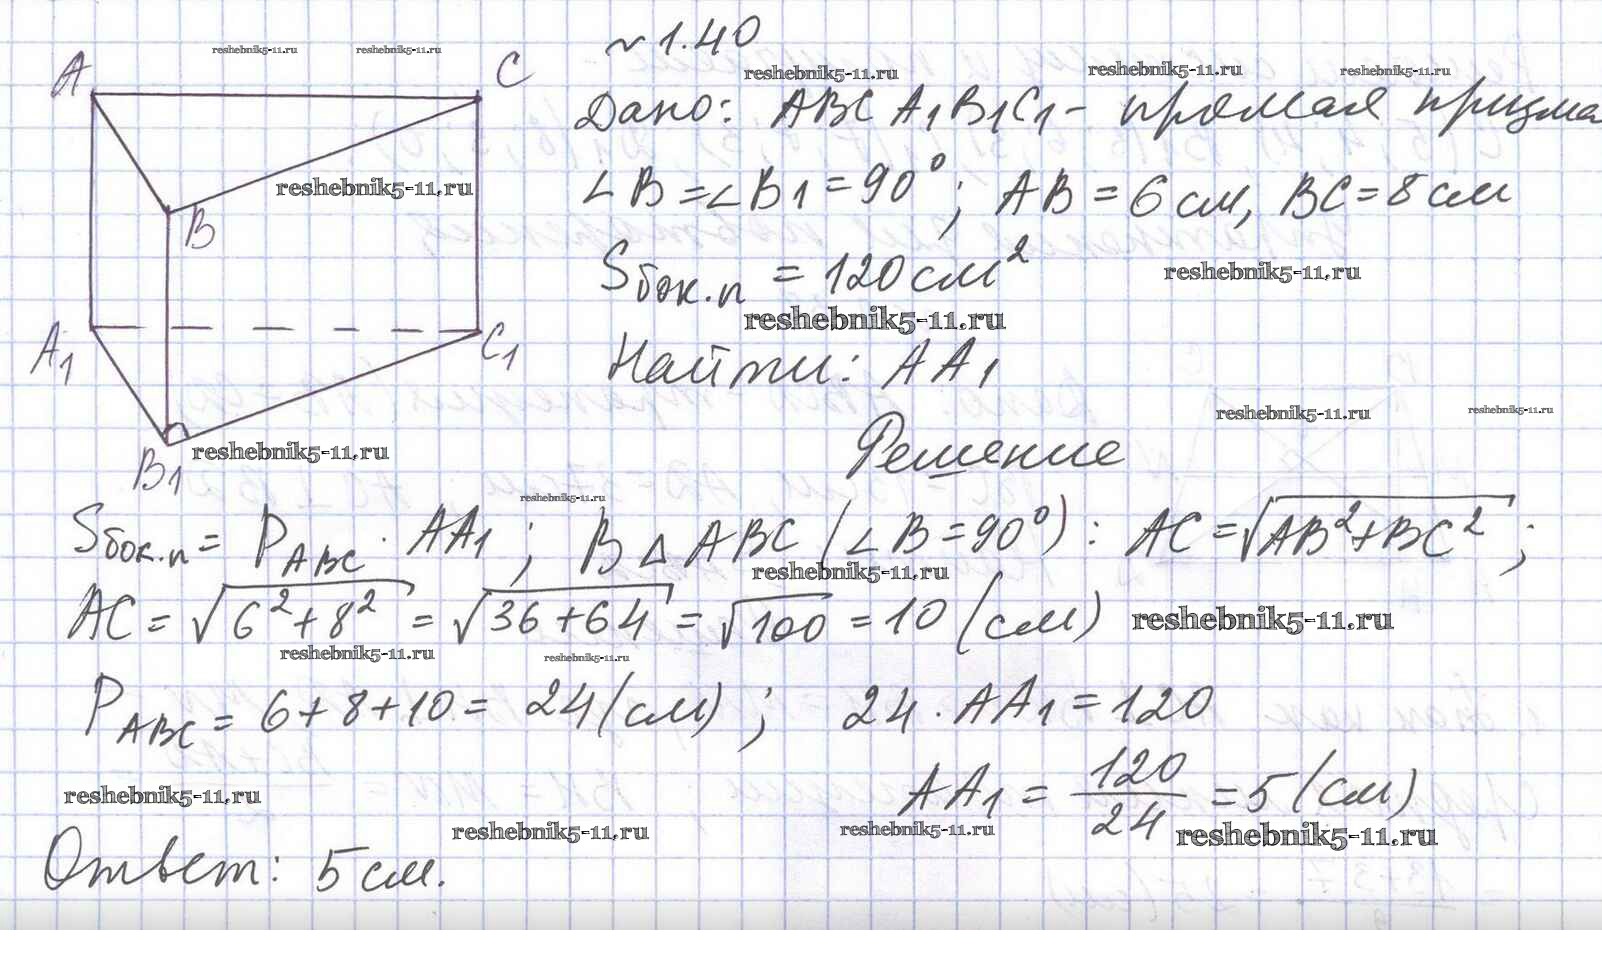 reshebnik5-11.ru reshebnik5-11.ru
~1.40
reshebnik5-11.ru reshebnik5-11.ru reshebnik5-11.ru
A C
Дано: ABC A₁B₁C₁ - прямая призма
reshebnik5-11.ru
∠B = ∠B₁ = 90°; AB = 6 см, BC = 8 см
B
Sбок.п = 120 см²
reshebnik5-11.ru
reshebnik5-11.ru
A₁ C₁
Найти: AA₁
reshebnik5-11.ru reshebnik5-11.ru
Решение
reshebnik5-11.ru
B₁
reshebnik5-11.ru
Sбок.п = P_ABC · AA₁; В △ ABC (∠B = 90°): AC = √(AB² + BC²);
reshebnik5-11.ru
AC = √(6² + 8²) = √(36 + 64) = √100 = 10 (см)
reshebnik5-11.ru
reshebnik5-11.ru reshebnik5-11.ru
P_ABC = 6 + 8 + 10 = 24 (см); 24 · AA₁ = 120
AA₁ = 120/24 = 5 (см)
reshebnik5-11.ru
reshebnik5-11.ru reshebnik5-11.ru reshebnik5-11.ru
Ответ: 5 см.